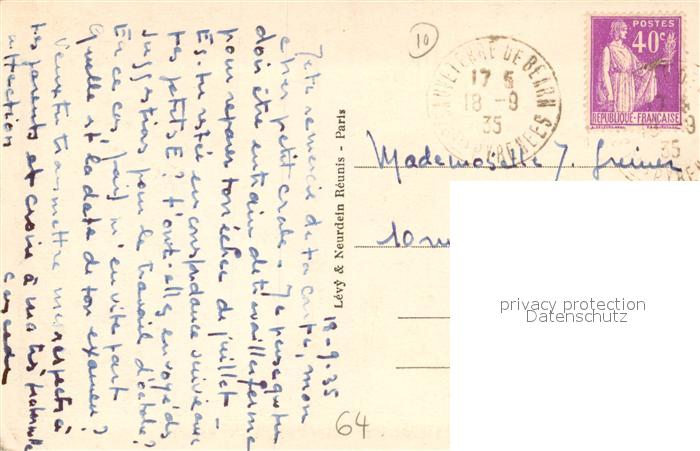 18-9.35
Je te remercie de ta carte, mon
cher petit crabe. Je pense que tu
dois être en train de travailler ferme
pour réparer ton échec de juillet.
Es-tu restée en correspondance suivie avec
tes petits E? T'ont-elles envoyé des
suggestions pour le travail d'octobre?
En ce cas, fais m'en vite part
Quelle est la date de ton examen?
Veux-tu transmettre mes respects à
tes parents et croire à ma très fraternelle
affection
Lévy & Neurdein Réunis - Paris
10
64
POSTES
40c
REPUBLIQUE-FRANCAISE
SAUVETERRE DE BEARN
17 5
18-9
35
PYRENEES
35
Mademoiselle J.
10 rue
privacy protection
Datenschutz